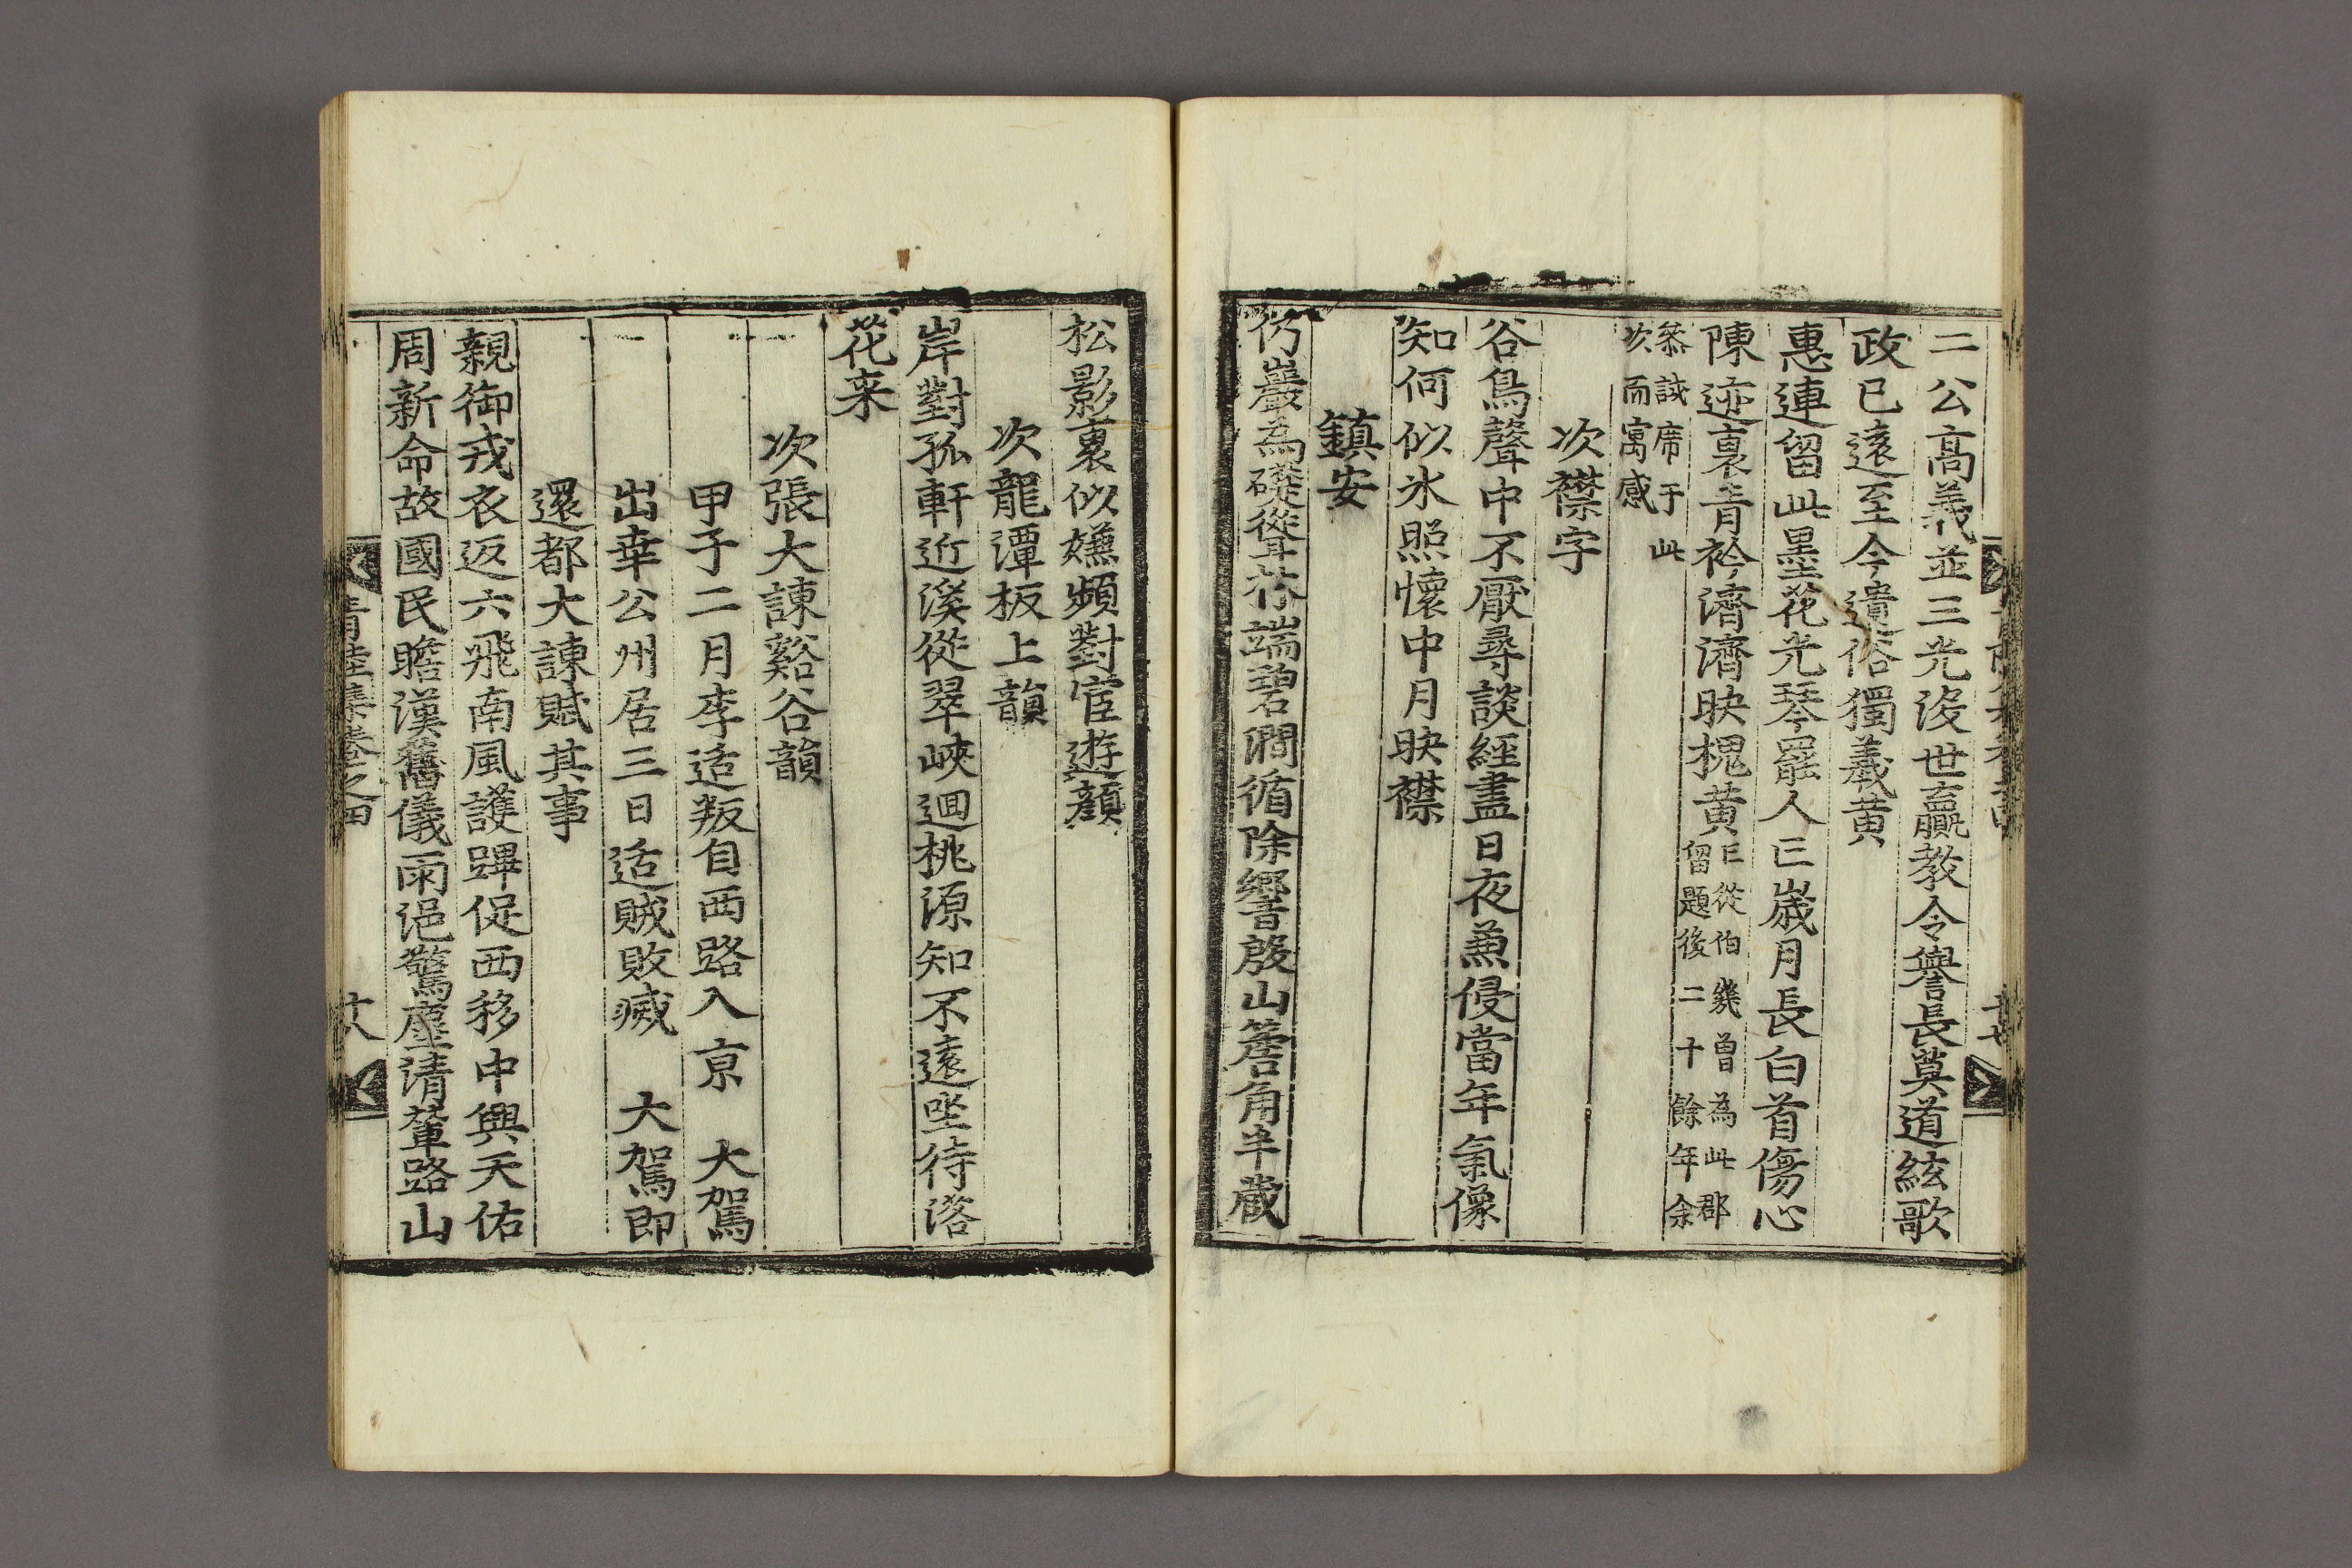 二公高義並三光沒世贏教令譽長莫道絃歌
政已遠至今遺俗獨羲黄
惠連留此墨花光琴罷人亡歲月長白首傷心
陳迹裏青衿濟濟映槐黄亡從伯幾曾為此郡
留題後二十餘年余
忝誠席于此
次而寓感
次襟字
谷鳥聲中不厭尋談經盡日夜兼侵當年氣像
知何似氷照懷中月映襟
鎮安
仍巖為礎從笻端碧澗循除響殷山簷角半藏
松影裏似嫌頻對宦遊顔
次龍潭板上韻
岸對孤軒近溪從翠峽廻桃源知不遠坐待落
花来
次張大諫谿谷韻
甲子二月李适叛自西路入亰 大駕
出幸公州居三日适賊敗㓕 大駕即
還都大諫賦其事
親御戎衣返六飛南風護蹕促西移中興天佑
周新命故國民瞻漢舊儀雨浥驚塵清輦路山
清陸集卷之四
十八